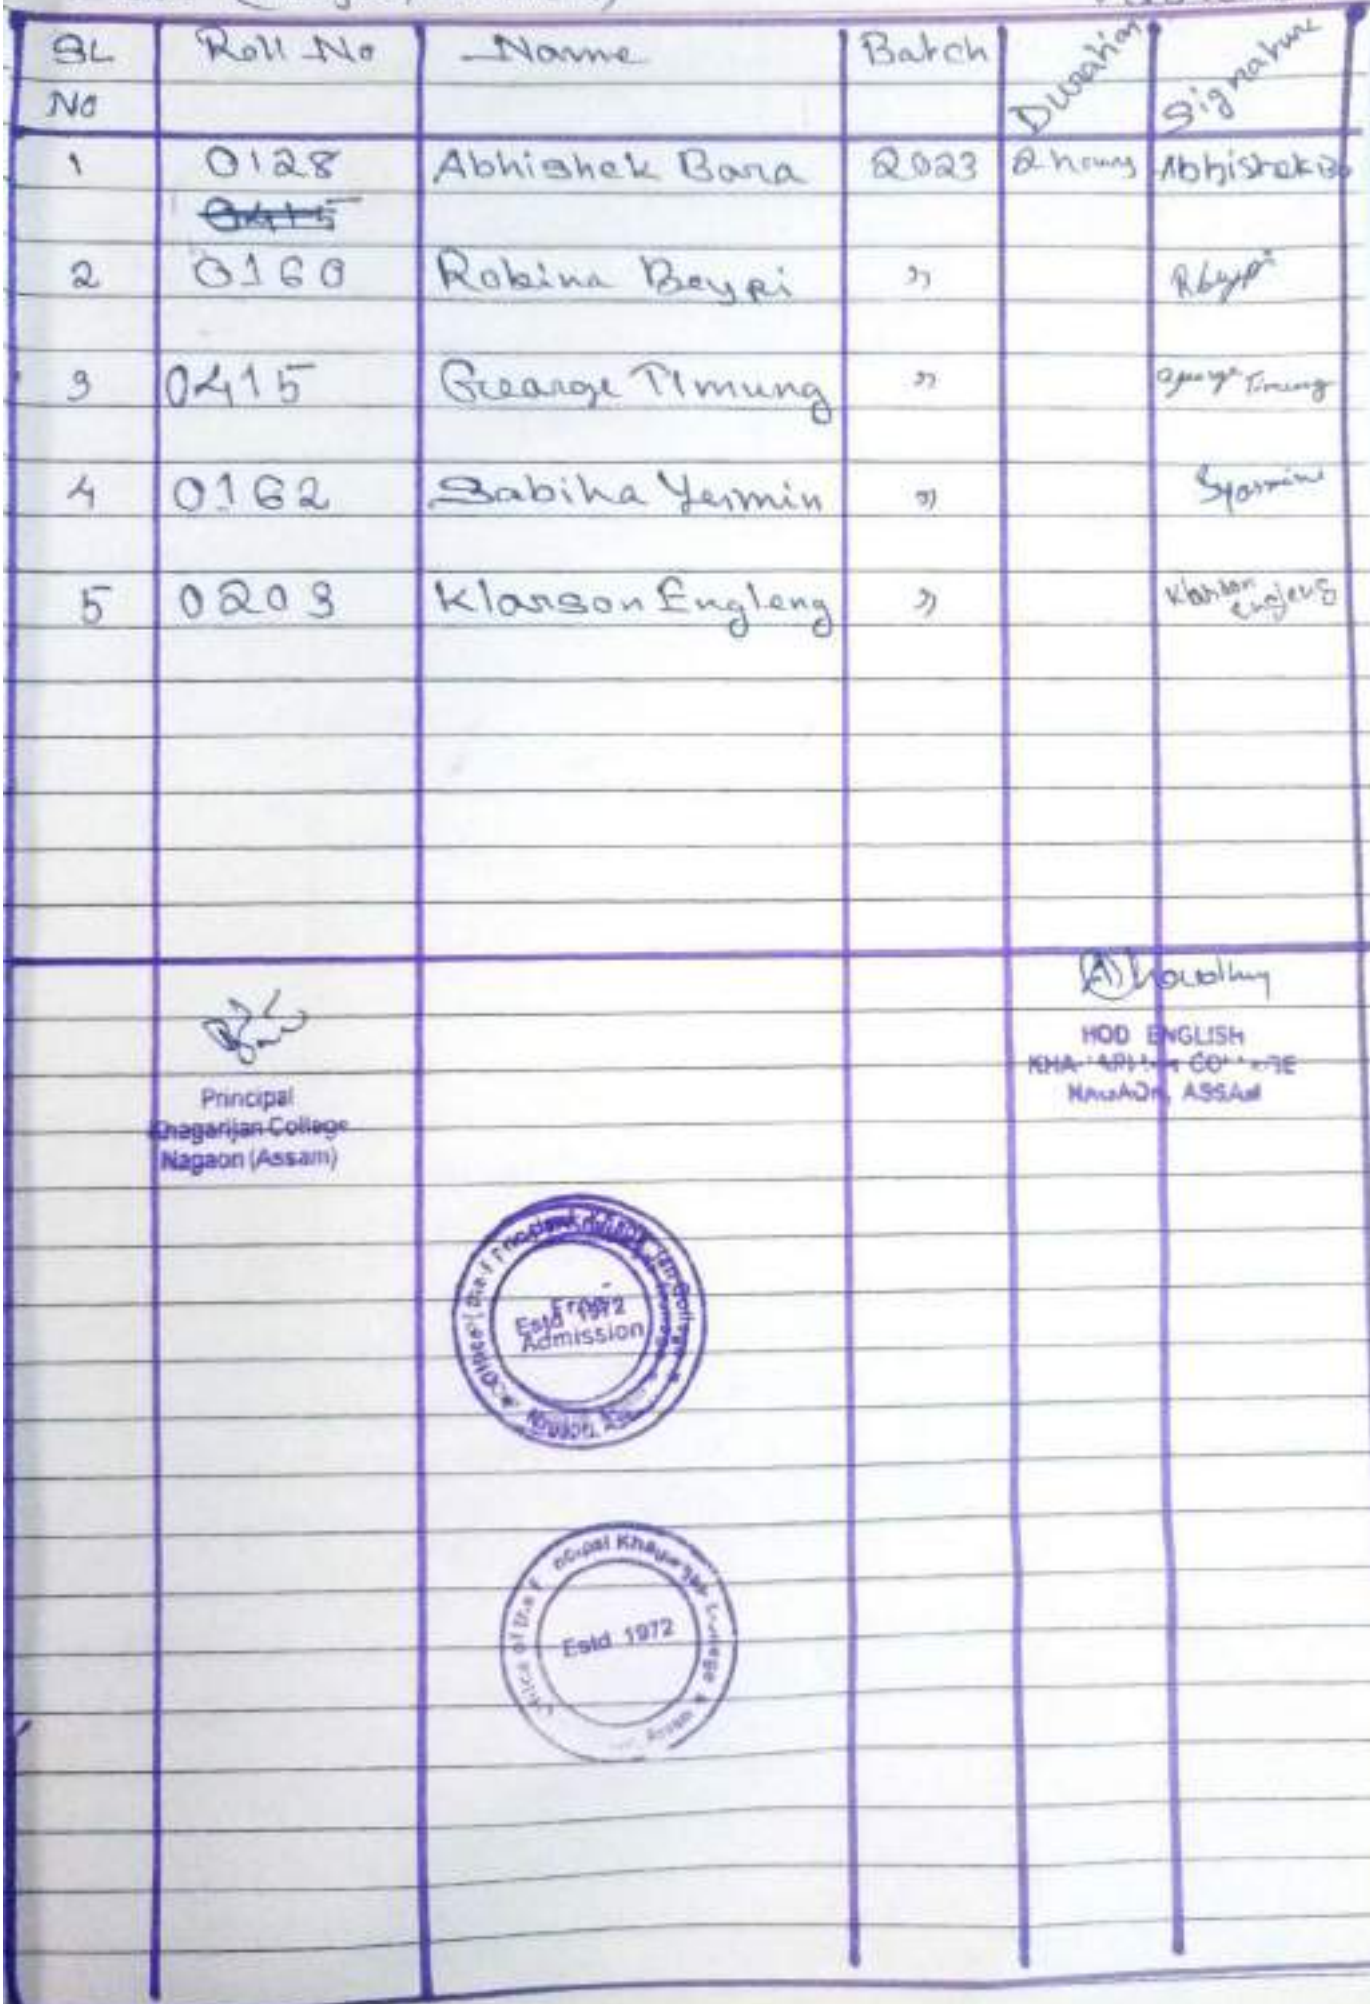 SL Roll No Name Batch Duration Signature
No
1 0128 Abhishek Bara 2023 2 hours Abhishek Ba
0415
2 0160 Robina Beypi " Rbeypi
3 0415 George Timung " George Timung
4 0162 Sabiha Yesmin " Syasmine
5 0203 Klarson Engleng " Klarson Engleng
Principal
Khagarijan College
Nagaon (Assam)
HOD ENGLISH
NAGAON, ASSAM
Estd 1972
Admission
Estd. 1972